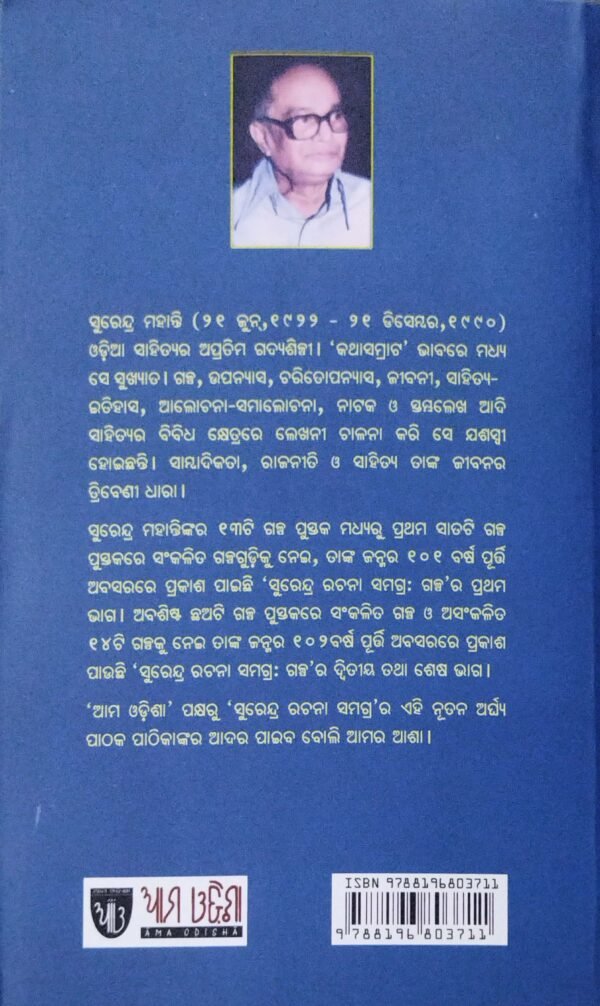 ସୁରେନ୍ଦ୍ର ମହାନ୍ତି (୨୧ ଜୁନ୍,୧୯୨୨ - ୨୧ ଡିସେମ୍ବର,୧୯୯୦)
ଓଡ଼ିଆ ସାହିତ୍ୟର ଅପ୍ରତିମ ଗଦ୍ୟଶିଳ୍ପୀ। ‘କଥାସମ୍ରାଟ’ ଭାବରେ ମଧ୍ୟ
ସେ ସୁଖ୍ୟାତ। ଗଳ୍ପ, ଉପନ୍ୟାସ, ଚରିତୋପନ୍ୟାସ, ଜୀବନୀ, ସାହିତ୍ୟ-
ଇତିହାସ, ଆଲୋଚନା-ସମାଲୋଚନା, ନାଟକ ଓ ସ୍ତମ୍ଭଲେଖ ଆଦି
ସାହିତ୍ୟର ବିବିଧ କ୍ଷେତ୍ରରେ ଲେଖନୀ ଚାଳନା କରି ସେ ଯଶସ୍ୱୀ
ହୋଇଛନ୍ତି। ସାମ୍ବାଦିକତା, ରାଜନୀତି ଓ ସାହିତ୍ୟ ତାଙ୍କ ଜୀବନର
ତ୍ରିବେଣୀ ଧାରା।
ସୁରେନ୍ଦ୍ର ମହାନ୍ତିଙ୍କର ୧୩ଟି ଗଳ୍ପ ପୁସ୍ତକ ମଧ୍ୟରୁ ପ୍ରଥମ ସାତଟି ଗଳ୍ପ
ପୁସ୍ତକରେ ସଂକଳିତ ଗଳ୍ପଗୁଡ଼ିକୁ ନେଇ, ତାଙ୍କ ଜନ୍ମର ୧୦୧ ବର୍ଷ ପୂର୍ତ୍ତି
ଅବସରରେ ପ୍ରକାଶ ପାଇଛି ‘ସୁରେନ୍ଦ୍ର ରଚନା ସମଗ୍ର: ଗଳ୍ପ’ର ପ୍ରଥମ
ଭାଗ। ଅବଶିଷ୍ଟ ଛଅଟି ଗଳ୍ପ ପୁସ୍ତକରେ ସଂକଳିତ ଗଳ୍ପ ଓ ଅସଂକଳିତ
୧୪ଟି ଗଳ୍ପକୁ ନେଇ ତାଙ୍କ ଜନ୍ମର ୧୦୨ବର୍ଷ ପୂର୍ତ୍ତି ଅବସରରେ ପ୍ରକାଶ
ପାଉଛି ‘ସୁରେନ୍ଦ୍ର ରଚନା ସମଗ୍ର: ଗଳ୍ପ’ର ଦ୍ୱିତୀୟ ତଥା ଶେଷ ଭାଗ।
‘ଆମ ଓଡ଼ିଶା’ ପକ୍ଷରୁ ‘ସୁରେନ୍ଦ୍ର ରଚନା ସମଗ୍ର’ର ଏହି ନୂତନ ଅର୍ଘ୍ୟ
ପାଠକ ପାଠିକାଙ୍କର ଆଦର ପାଇବ ବୋଲି ଆମର ଆଶା।
ଆଓ
ଆମ ଓଡ଼ିଶା
AMA ODISHA
ISBN 9788196803711
9 788196 803711